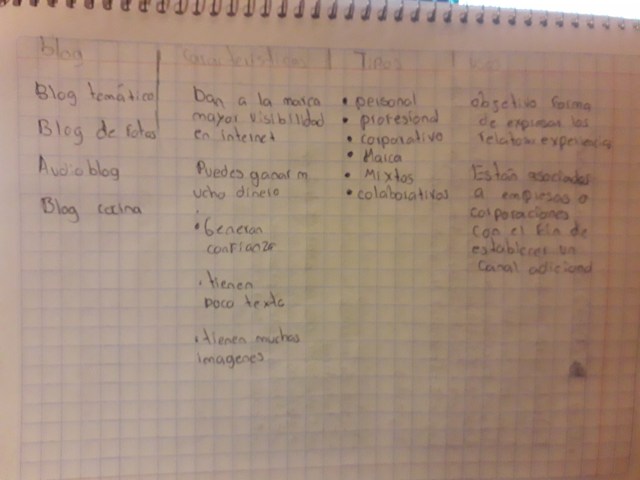 blog
Blog temático
Blog de fotos
Audioblog
Blog cocina
Características
Dan a la marca
mayor visibilidad
en internet
Puedes ganar m
ucho dinero
• Generan
confianza
• tienen
poco texto
• tienen muchas
imagenes
Tipos
• personal
• profesional
• corporativo
• Marca
• Mixtos
• colaborativos
objetivo forma
de expresar los
relatos experiencia
Están asociados
a empresas o
corporaciones
con el fin de
establecer un
canal adicional